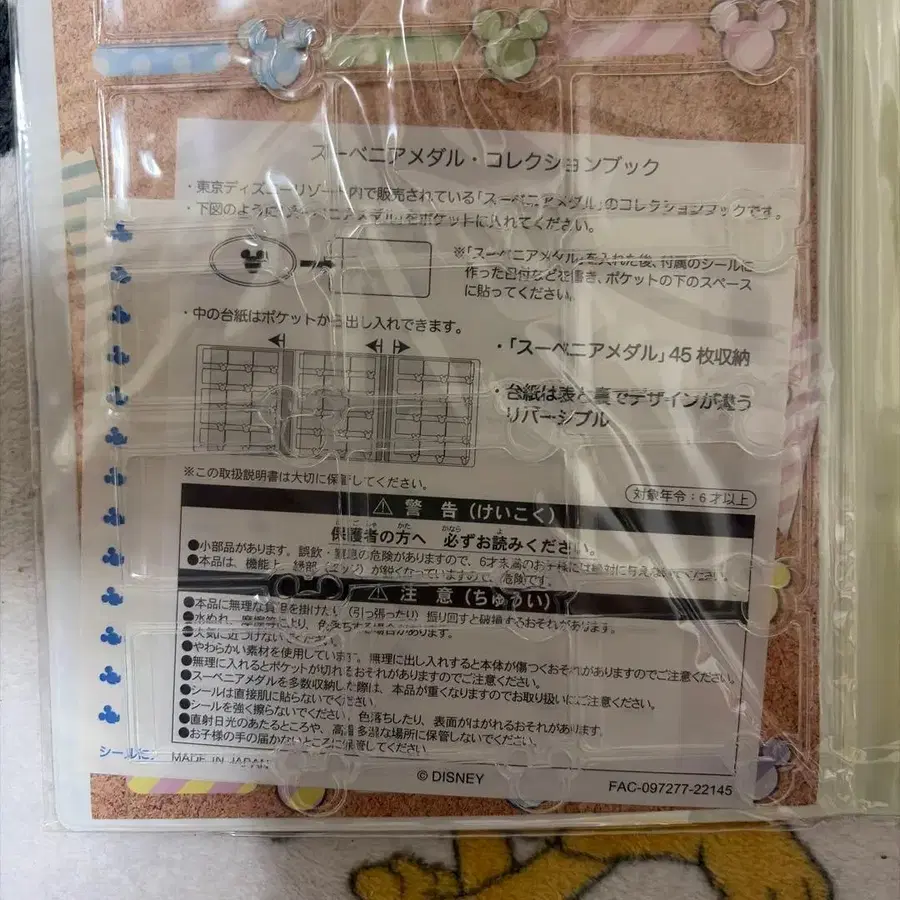 スーベニアメダル・コレクションブック
・東京ディズニーリゾート内で販売されている「スーベニアメダル」のコレクションブックです。
・下図のように「スーベニアメダル」をポケットに入れてください。
※「スーベニアメダル」を入れた後、付属のシールに
作った日付などを書き、ポケットの下のスペース
に貼ってください。
・中の台紙はポケットから出し入れできます。
・「スーベニアメダル」45枚収納
・台紙は表と裏でデザインが違う
リバーシブル
※この取扱説明書は大切に保管してください。
対象年令：6才以上
⚠ 警告（けいこく）
保護者の方へ 必ずお読みください。
●小部品があります。誤飲・窒息の危険がありますので、6才未満のお子様には絶対に与えないでください。
●本品は、機能上、縁部（エッジ）が鋭くなっていますので、危険です。
⚠ 注意（ちゅうい）
●本品に無理な負担を掛けたり（引っ張ったり）振り回すと破損するおそれがあります。
●水ぬれ、摩擦等により、色落ちする場合があります。
●火気に近づけないでください。
●やわらかい素材を使用しています。無理に出し入れすると本体が傷つくおそれがありますのでご注意ください。
●無理に入れるとポケットが切れるおそれがありますのでご注意ください。
●スーベニアメダルを多数収納した際は、本品が重くなりますのでお取り扱いにご注意ください。
●シールは直接肌に貼らないでください。
●シールを強く擦らないでください。色落ちしたり、表面がはがれるおそれがあります。
●直射日光のあたるところや、高温多湿な場所に保管しないでください。
●お子様の手の届かないところに保管してください。
シールに
MADE IN JAPAN
© DISNEY
FAC-097277-22145